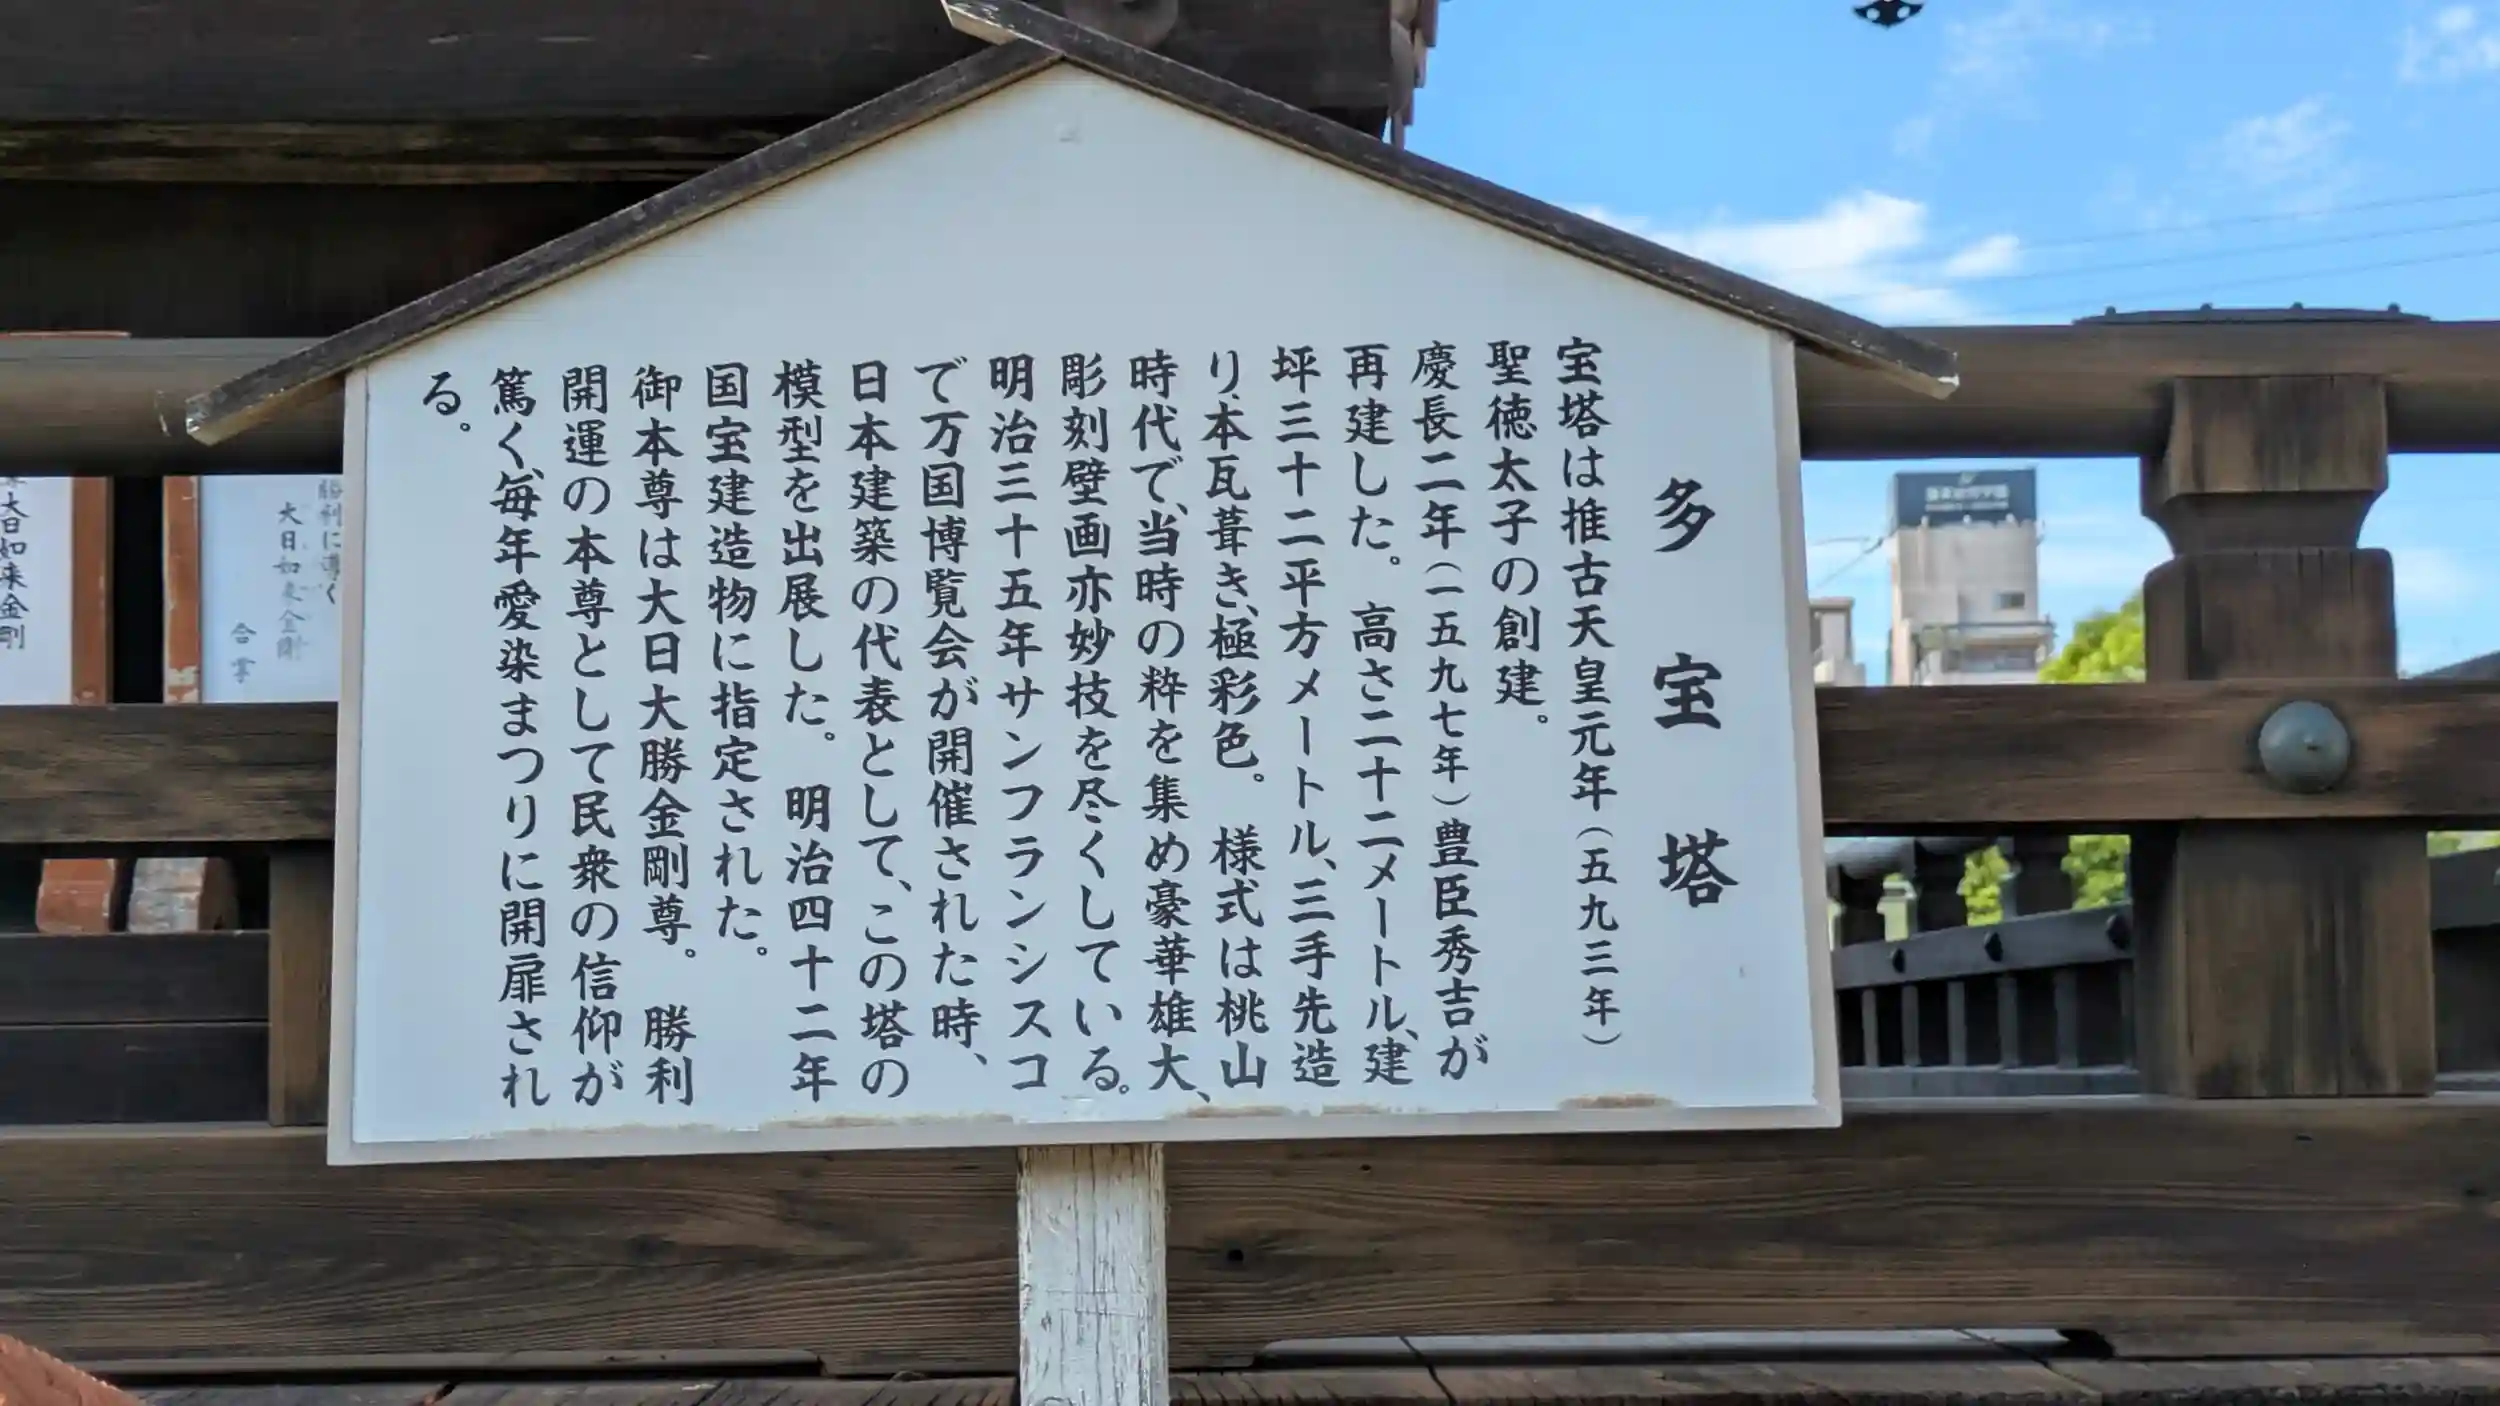 多宝塔
宝塔は推古天皇元年（五九三年）
聖徳太子の創建。
慶長二年（一五九七年）豊臣秀吉が
再建した。高さ二十二メートル、建
坪三十二平方メートル、三手先造
り、本瓦葺き、極彩色。様式は桃山
時代で、当時の粋を集め豪華雄大、
彫刻壁画亦妙技を尽くしている。
明治三十五年サンフランシスコ
で万国博覧会が開催された時、
日本建築の代表として、この塔の
模型を出展した。明治四十二年
国宝建造物に指定された。
御本尊は大日大勝金剛尊。勝利
開運の本尊として民衆の信仰が
篤く、毎年愛染まつりに開扉され
る。
勝利に導く
大日如来金剛
合掌
大日如来金剛